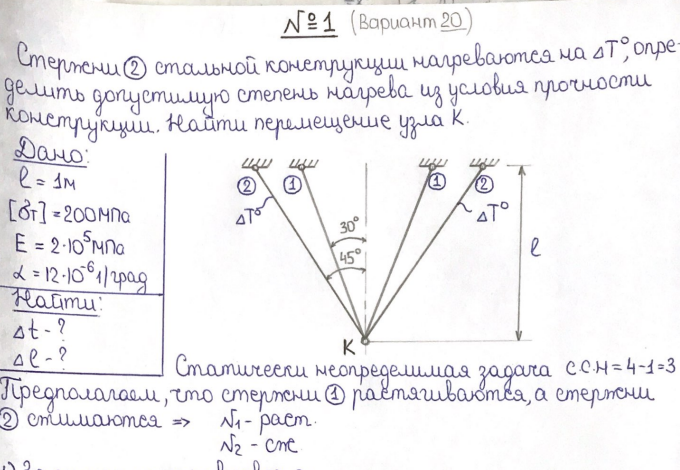 №1 (Вариант 20)
Стержни ② стальной конструкции нагреваются на ΔT°, опре-
делить допустимую степень нагрева из условия прочности
конструкции. Найти перемещение узла К.
Дано:
l = 1м
[σт] = 200МПа
E = 2·10⁵МПа
α = 12·10⁻⁶ 1/град
Найти:
Δt - ?
Δl - ?
② ① ① ②
ΔT° ΔT°
30°
45°
l
К
Статически неопределимая задача С.С.Н = 4-1=3
Предполагаем, что стержни ① растягиваются, а стержни
② сжимаются ⇒ N₁ - раст.
N₂ - сж